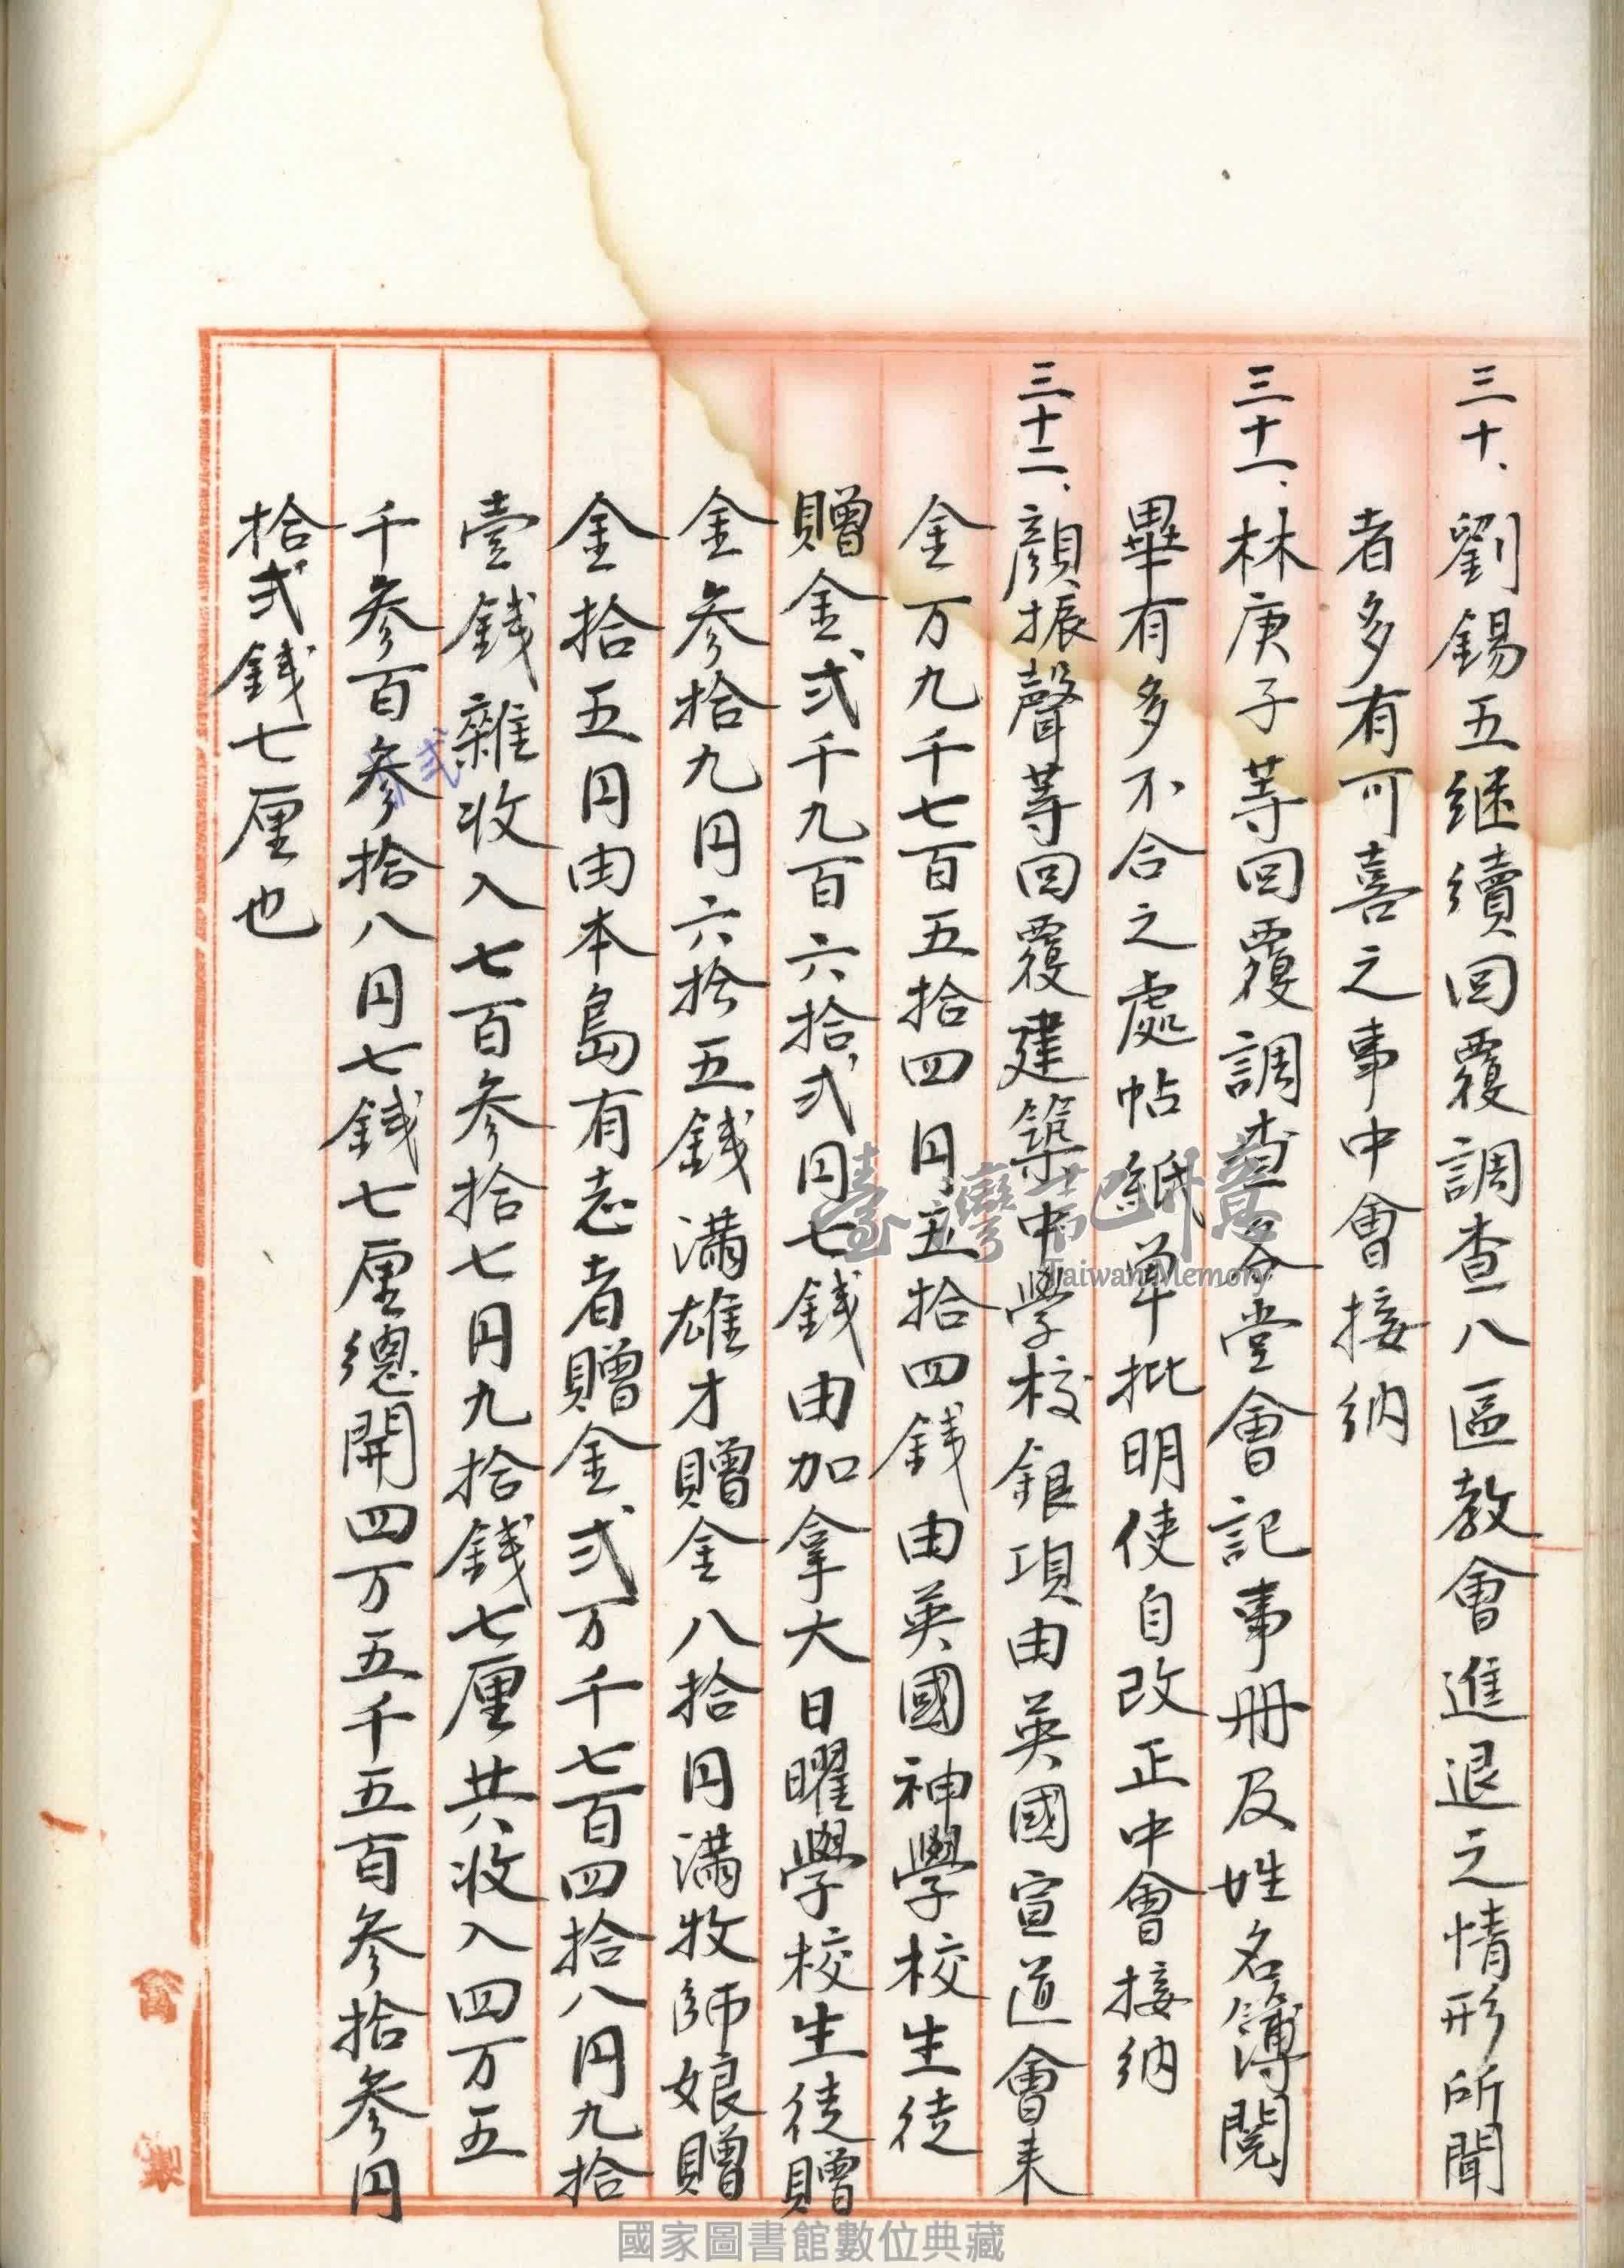 三十、劉錫五継續回覆調查八區教會進退之情形所聞
者多有可喜之事中會接納
三十一、林庚子等回覆調查各堂會記事冊及姓名簿閱
畢有多不合之處帖紙單批明使自改正中會接納
三十二、顏振聲等回覆建築中學校銀項由英國宣道會来
金万九千七百五拾四円五拾四銭由英國神學校生徒
贈金弍千九百六拾弍円七銭由加拿大日曜學校生徒贈
金参拾九円六拾五銭満雄才贈金八拾円満牧師娘贈
金拾五円由本島有志者贈金弍万千七百四拾八円九拾
壹銭雜收入七百参拾七円九拾銭七厘共收入四万五
千参百参拾八円七銭七厘總開四万五千五百参拾参円
弍
拾弍銭七厘也
臺灣記憶
Taiwan Memory
製
國家圖書館數位典藏